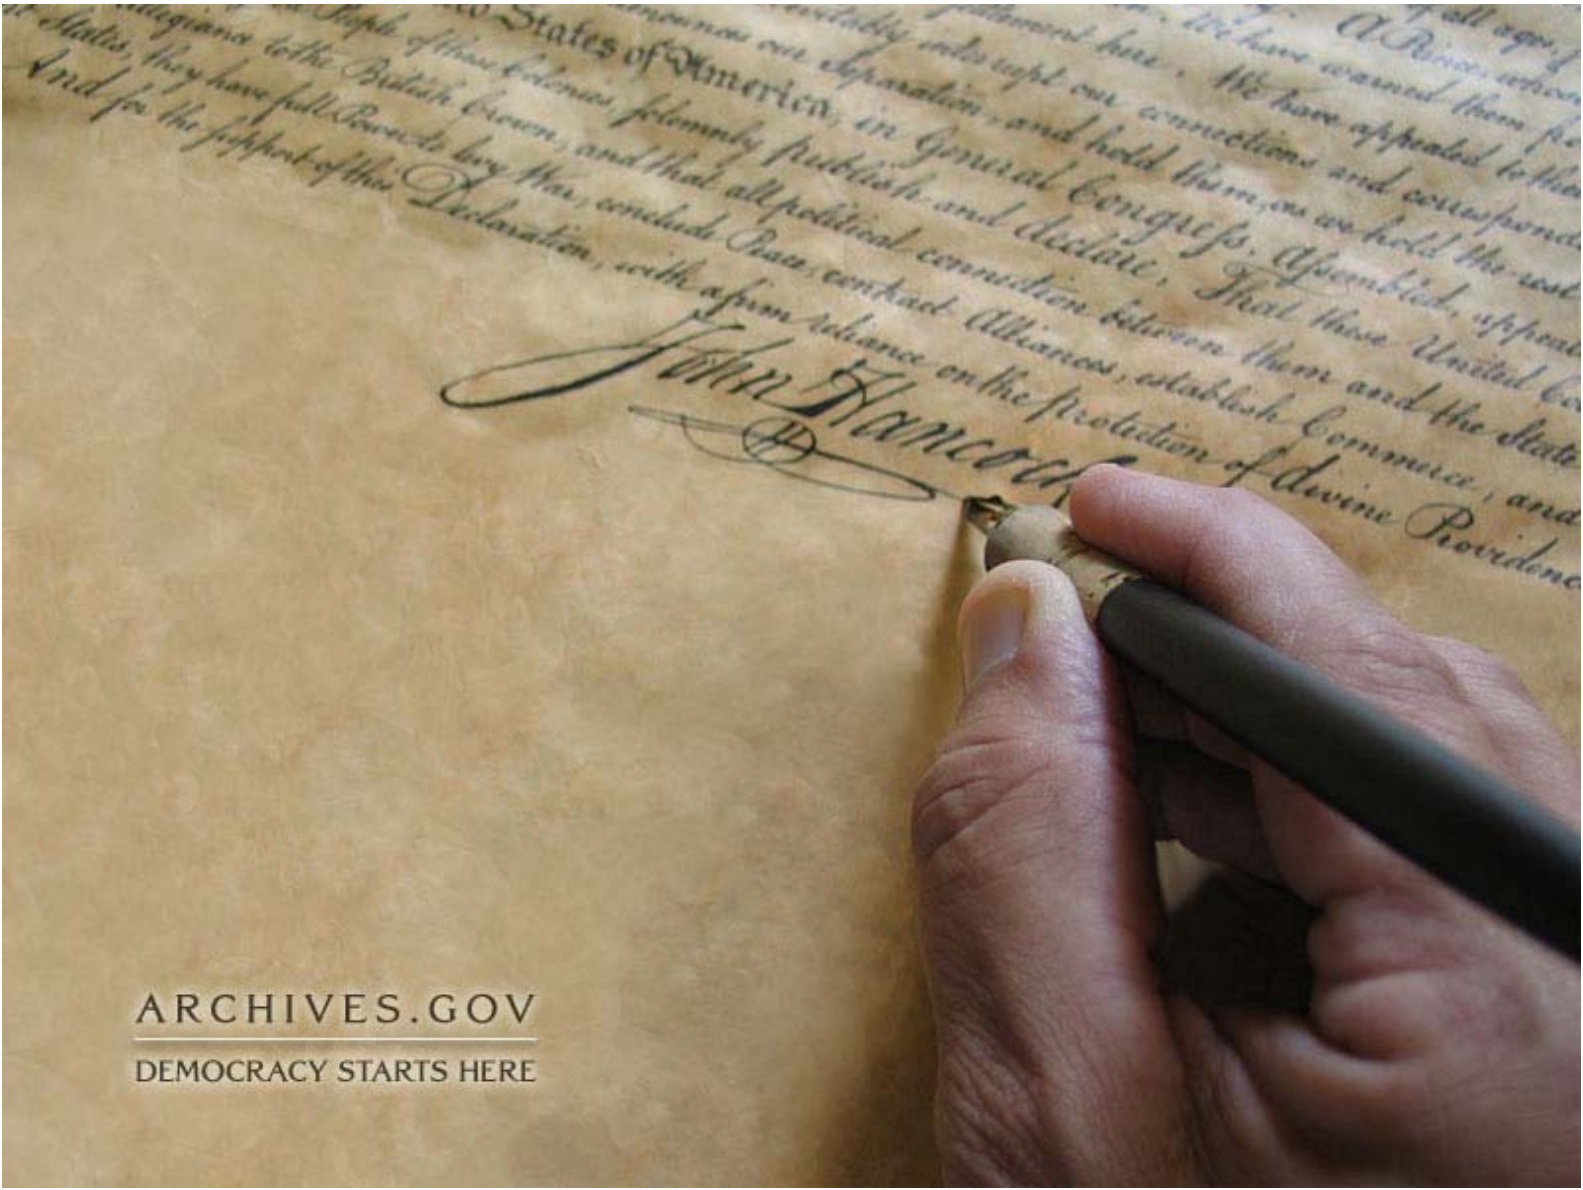 of all ages,
A Prince, whose
We have warned them
here. We have appealed to
interrupt our connections and
our Separation, and hold them, as we hold the rest
States of America, in General Congress, Assembled,
People of these Colonies, solemnly publish and declare, That these United
to the British Crown, and that all political connection between them and the State
States, they have full Power to levy War, conclude Peace, contract Alliances, establish Commerce, and
And for the support of this Declaration, with a firm reliance on the protection of divine
John Hancock
ARCHIVES.GOV
DEMOCRACY STARTS HERE